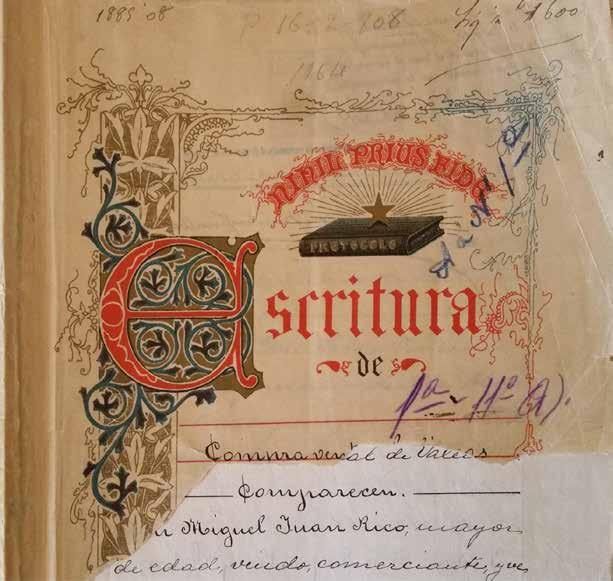 1889 08
P 16-2-708
1164
NIHIL PRIUS FIDE
PROTOCOLO
Escritura
de
1ª - 11º (A).
Compra venta de
Comparecen.
Miguel Juan Rico, mayor
de edad, viudo, comerciante, y ve